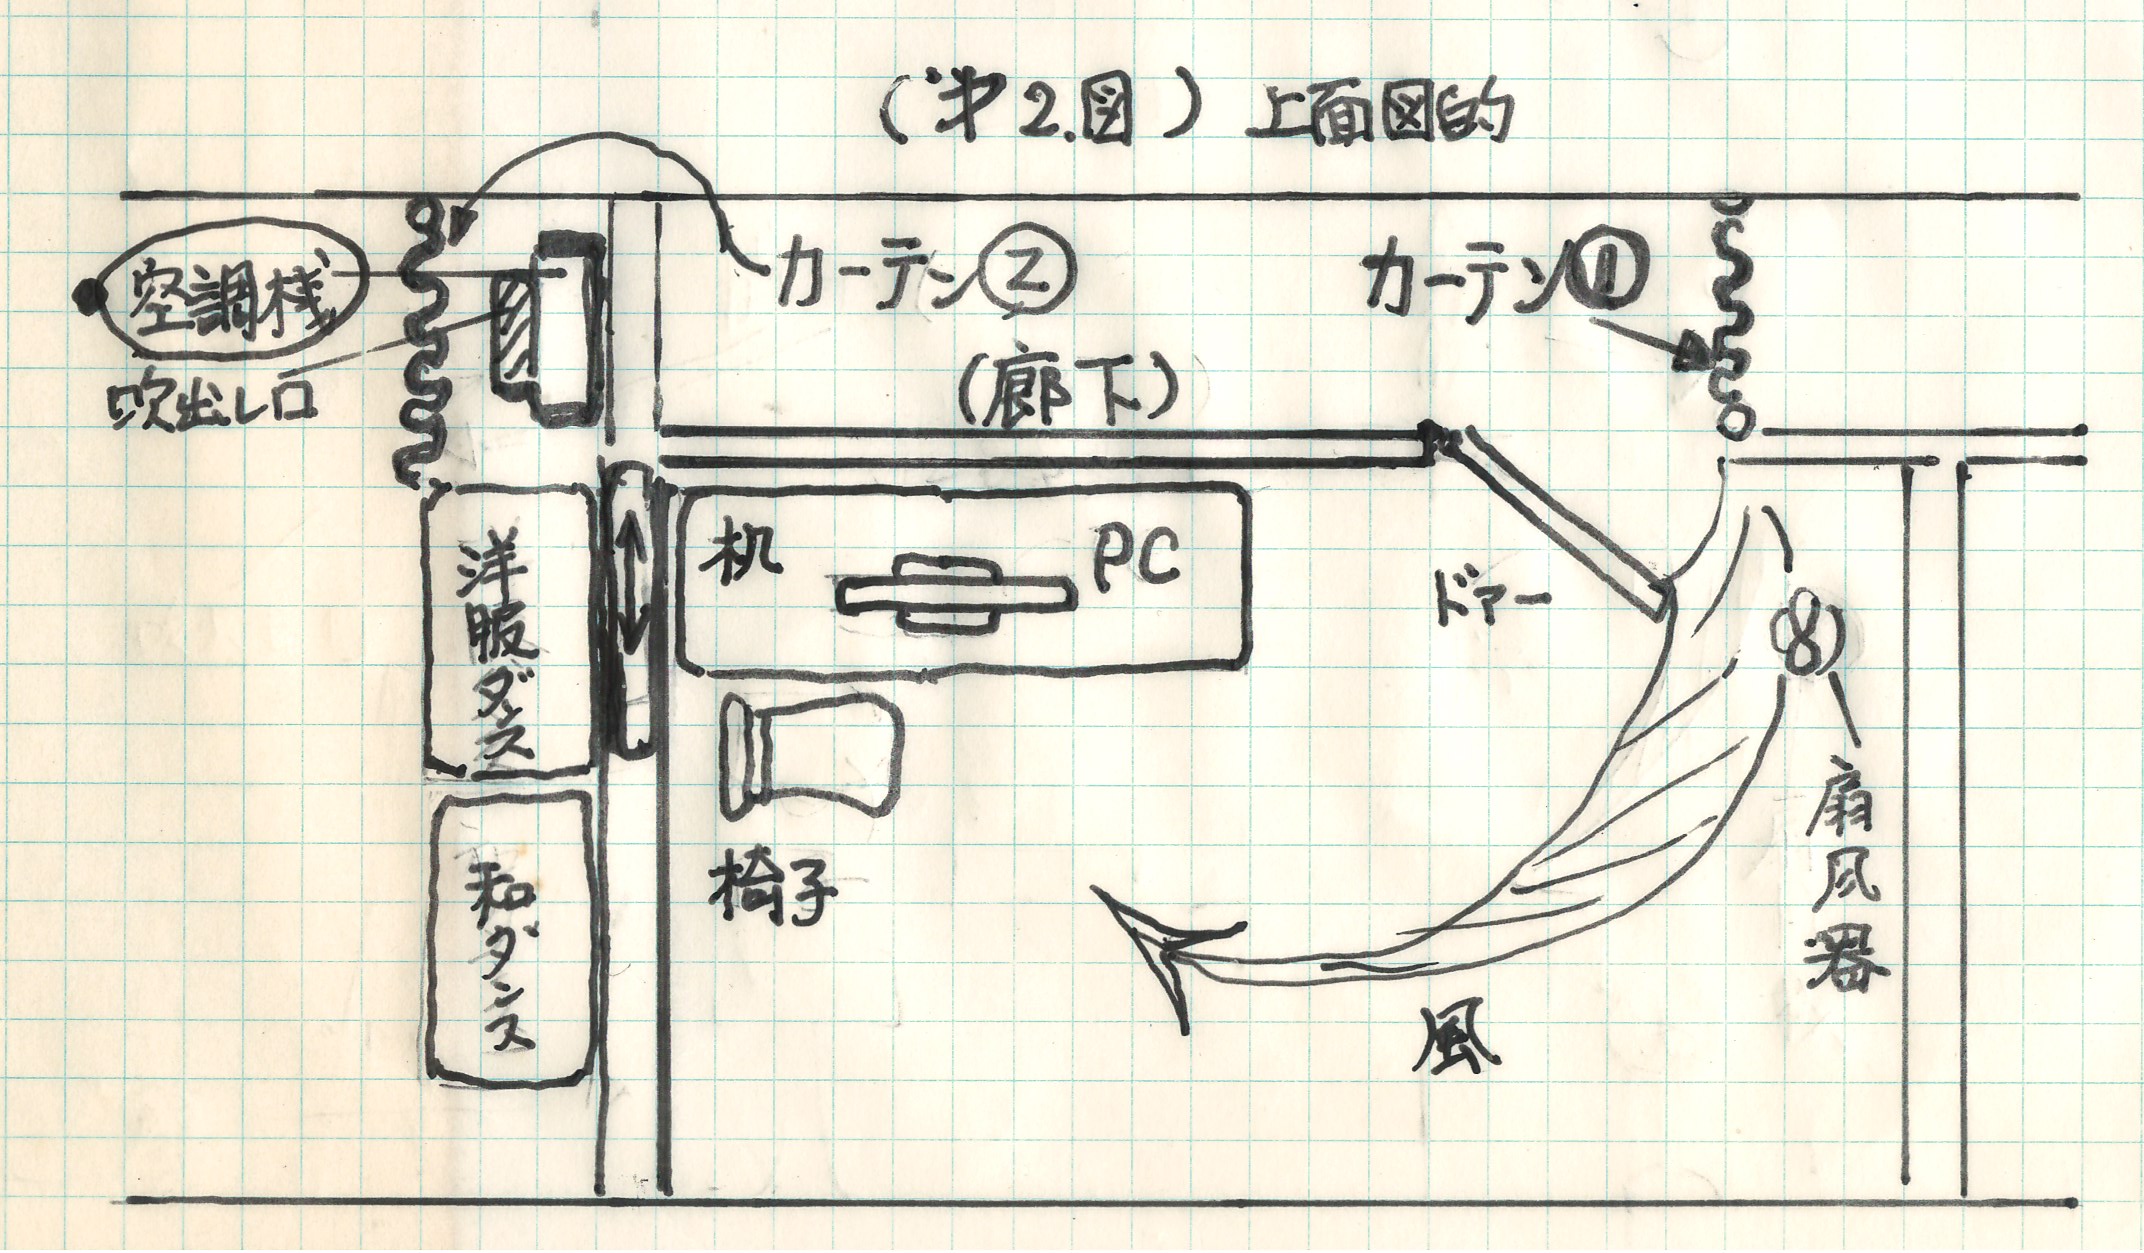 (第2.図) 上面図的
空調機
吹出し口
カーテン②
カーテン①
(廊下)
机
PC
ドアー
洋服ダンス
椅子
和ダンス
扇風器
風